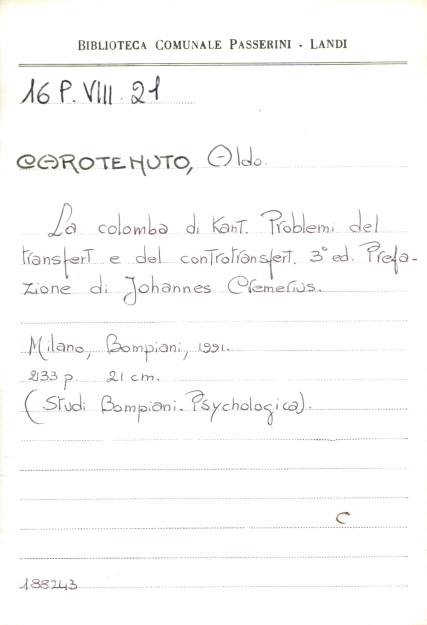 BIBLIOTECA COMUNALE PASSERINI - LANDI
16 P. VIII. 21
CAROTENUTO, Aldo.
La colomba di Kant. Problemi del
transfert e del controtransfert. 3° ed. Prefa-
zione di Johannes Cremerius.
Milano, Bompiani, 1991.
233 p. 21 cm.
(Studi Bompiani. Psychologica).
C
188243